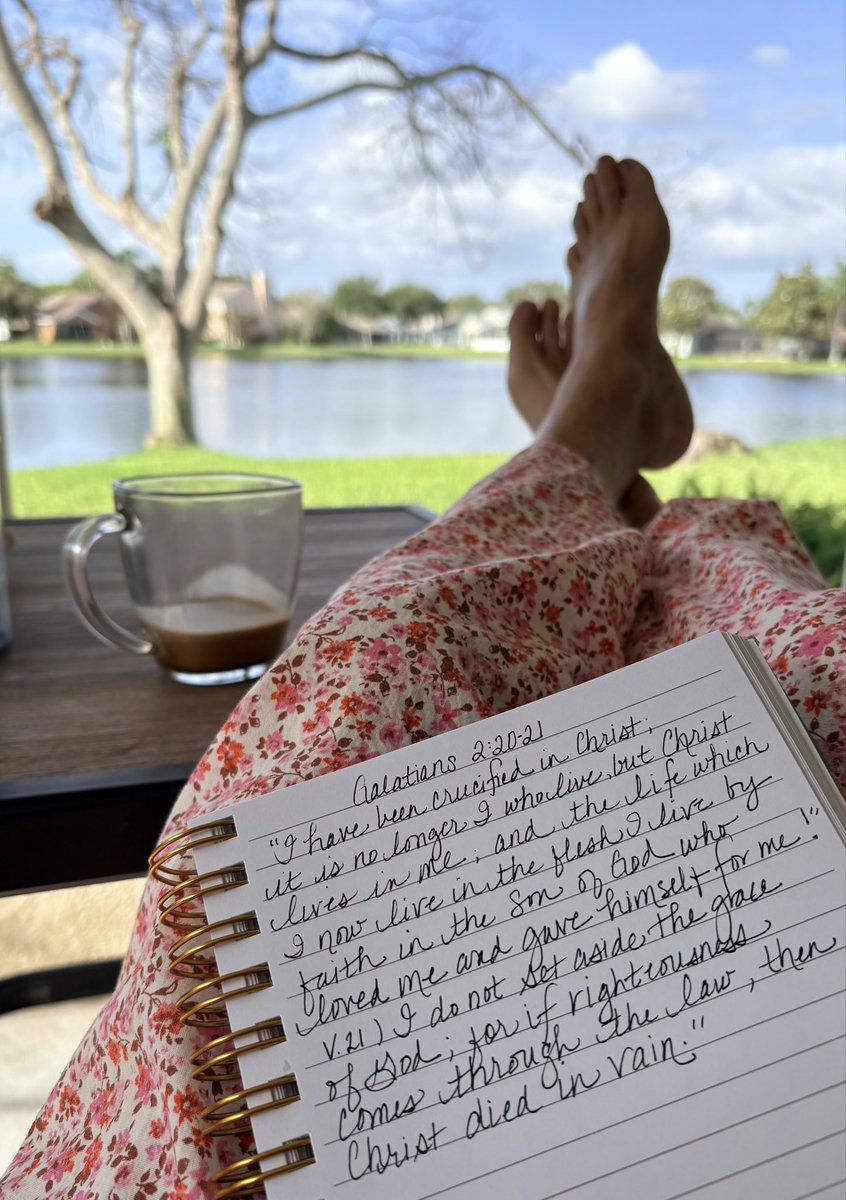 Galatians 2:20-21
"I have been crucified in Christ;
it is no longer I who live, but Christ
lives in me; and the life which
I now live in the flesh I live by
faith in the Son of God who
loved me and gave himself for me!"
V.21) I do not set aside the grace
of God; for if righteousness
comes through the law, then
Christ died in vain."